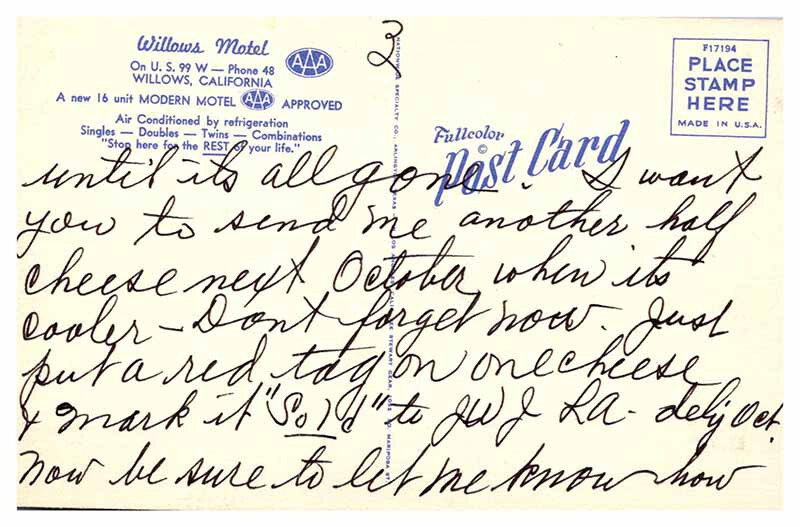 2
Willows Motel
On U. S. 99 W — Phone 48
WILLOWS, CALIFORNIA
AAA
A new 16 unit MODERN MOTEL AAA APPROVED
Air Conditioned by refrigeration
Singles — Doubles — Twins — Combinations
"Stop here for the REST of your life."
F17194
PLACE
STAMP
HERE
MADE IN U.S.A.
Fullcolor
©
Post Card
NATIONWIDE SPECIALTY CO., ARLINGTON, TEXAS
until its all gone. I want
you to send me another half
cheese next October when its
cooler – Dont forget now. Just
put a red tag on one cheese
& mark it "Sold" to JWJ LA - deliy Oct.
Now be sure to let me know how